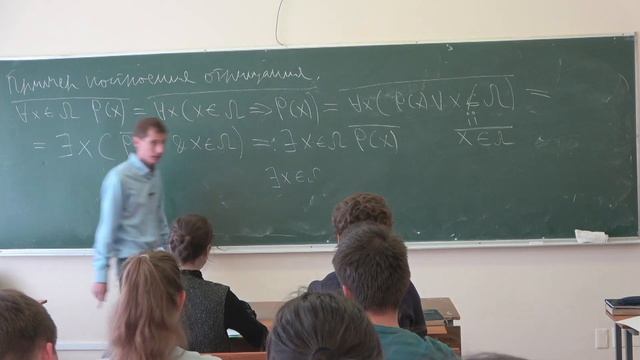 Пример построения отрицания.
$\overline{\forall x \in \Omega \; P(x)} = \overline{\forall x (x \in \Omega \Rightarrow P(x))} = \overline{\forall x (P(x) \vee x \notin \Omega)} =$
$= \exists x (\overline{P(x)} \& x \in \Omega) =: \exists x \in \Omega \; \overline{P(x)}$
$\overline{x \in \Omega}$
$\exists x \in \Omega$